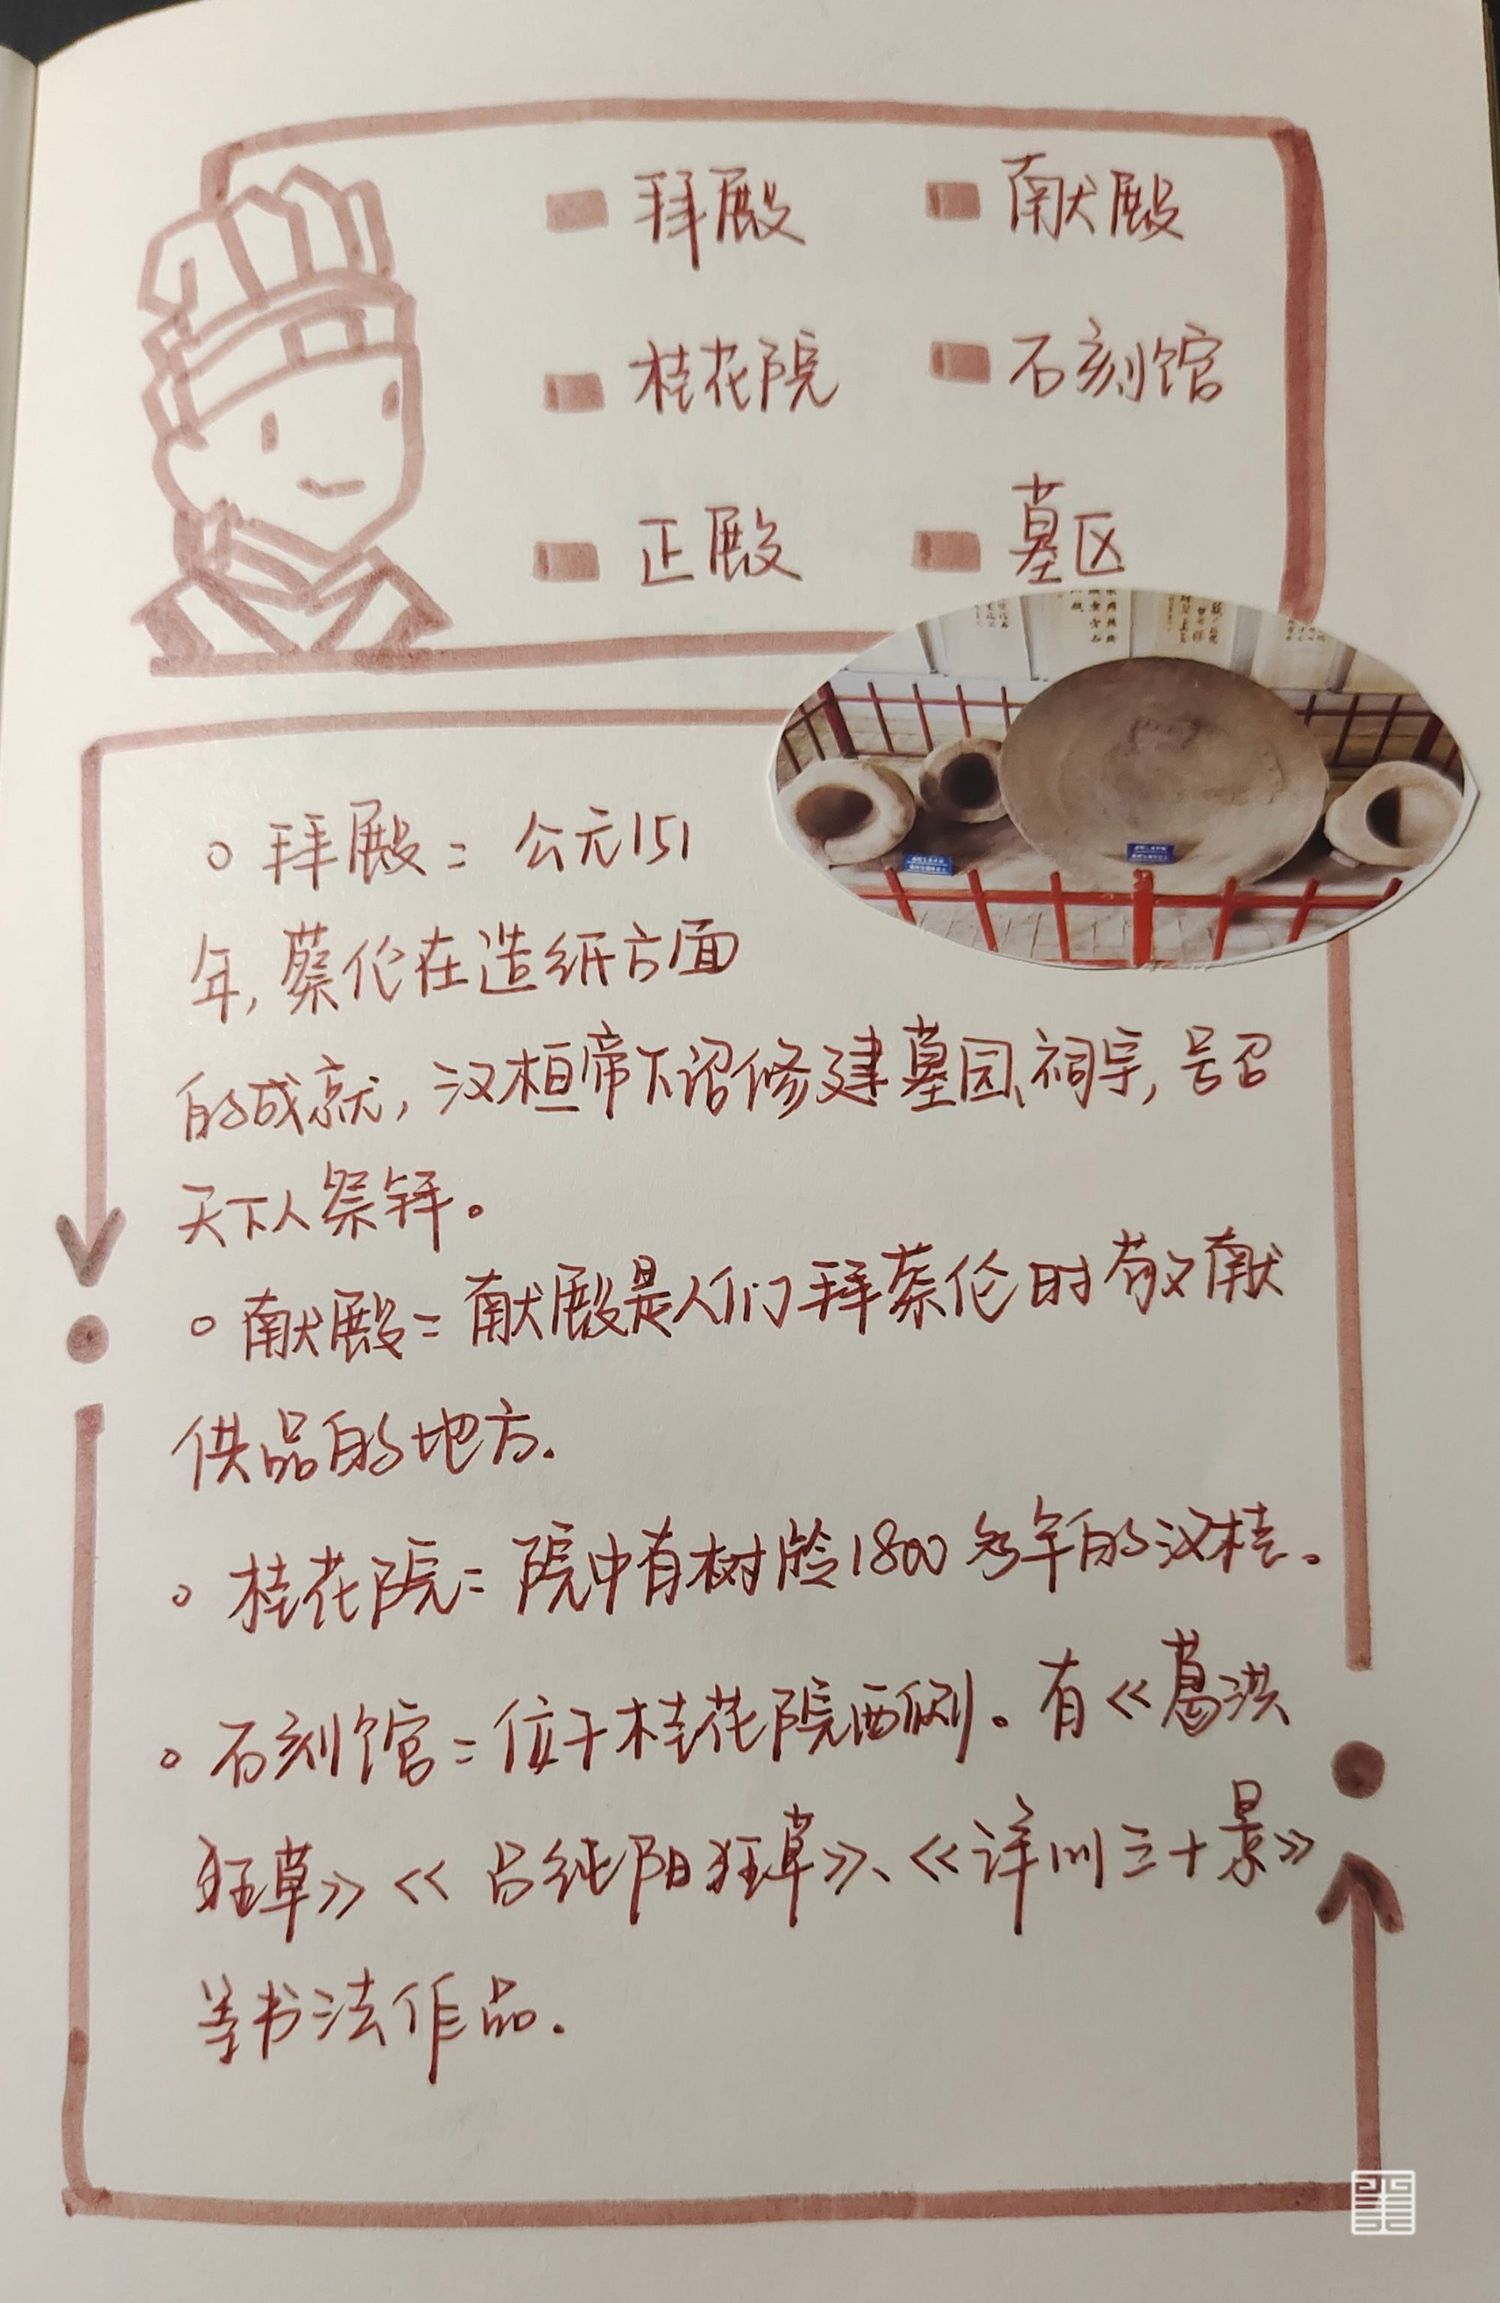 拜殿 献殿
桂花院 石刻馆
正殿 墓区
拜殿：公元151
年，蔡伦在造纸方面
的成就，汉桓帝下诏修建墓园、祠宇，号召
天下人祭拜。
献殿：献殿是人们拜蔡伦时敬献
供品的地方.
桂花院：院中有树龄1800多年的汉桂。
石刻馆：位于桂花院西侧。有《葛洪
狂草》《吕纯阳狂草》、《洋川三十景》
等书法作品.